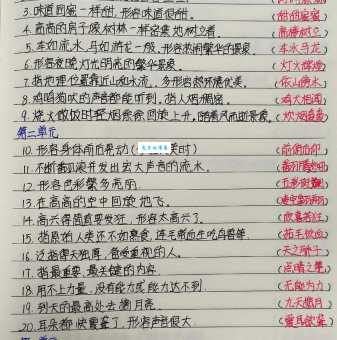 3.味道同蜜一样甜,形容味道很甜。(甜甜蜜蜜)
4.高高的房子像树林一样密集地树立着。(高楼林立)
5.车如流水,马如游龙一般,形容热闹繁华的景象。(车水马龙)
6.形容夜晚灯光明亮的繁华景象。(灯火辉煌)
7.指地理位置靠近山和水流,多形容自然环境优美。(依山傍水)
8.鸡鸣狗吠的声音都能听到,指人烟稠密。(鸡犬相闻)
9.烧火做饭时轻烟袅袅回旋上升,随着风而逝景象。(炊烟袅袅)
第二单元
10.形容身体前后晃动( 时)(前俯后仰)
11.不断翻滚并发出宏大声音的流水。
12.形容色彩繁多亮丽。(五彩斑斓)
13.在高高的空中回旋地飞。
14.高兴得简直要发狂,形容太高兴了。(欣喜若狂)
15.指原始人类还不知熟食,连毛带血生吃鸟兽等(茹毛饮血)
16.泛指得天独厚,备受重视的人。(天之骄子)
17.指最重要、最关键的内容(点睛之笔)
18.用不上力量,没有能力或能力达不到(无能为力)
19.到天的最高处去摘月亮(九天揽月)
20.耳朵都快震聋了,形容声音很大(震耳欲聋)